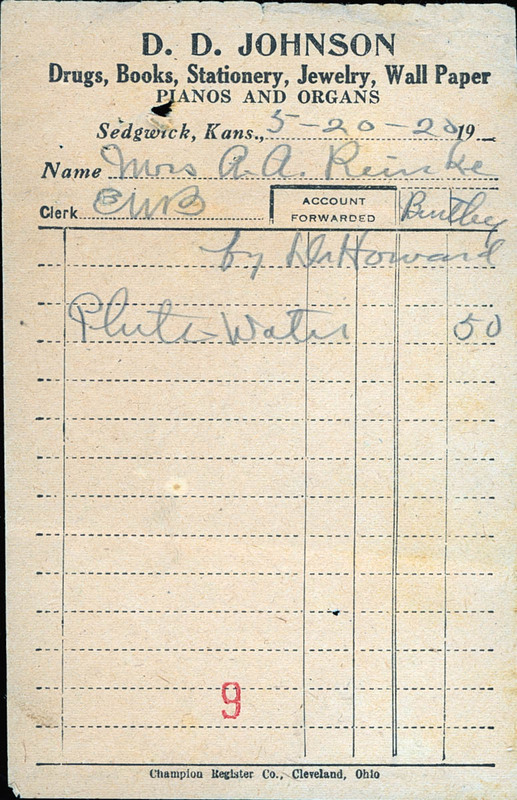 D. D. JOHNSON
Drugs, Books, Stationery, Jewelry, Wall Paper
PIANOS AND ORGANS
Sedgwick, Kans., 5-20-20 19
Name Mrs A. A. Reinke
Clerk EWB ACCOUNT FORWARDED Bentley
by Dr Howard
Pluto-Water 50
9
Champion Register Co., Cleveland, Ohio